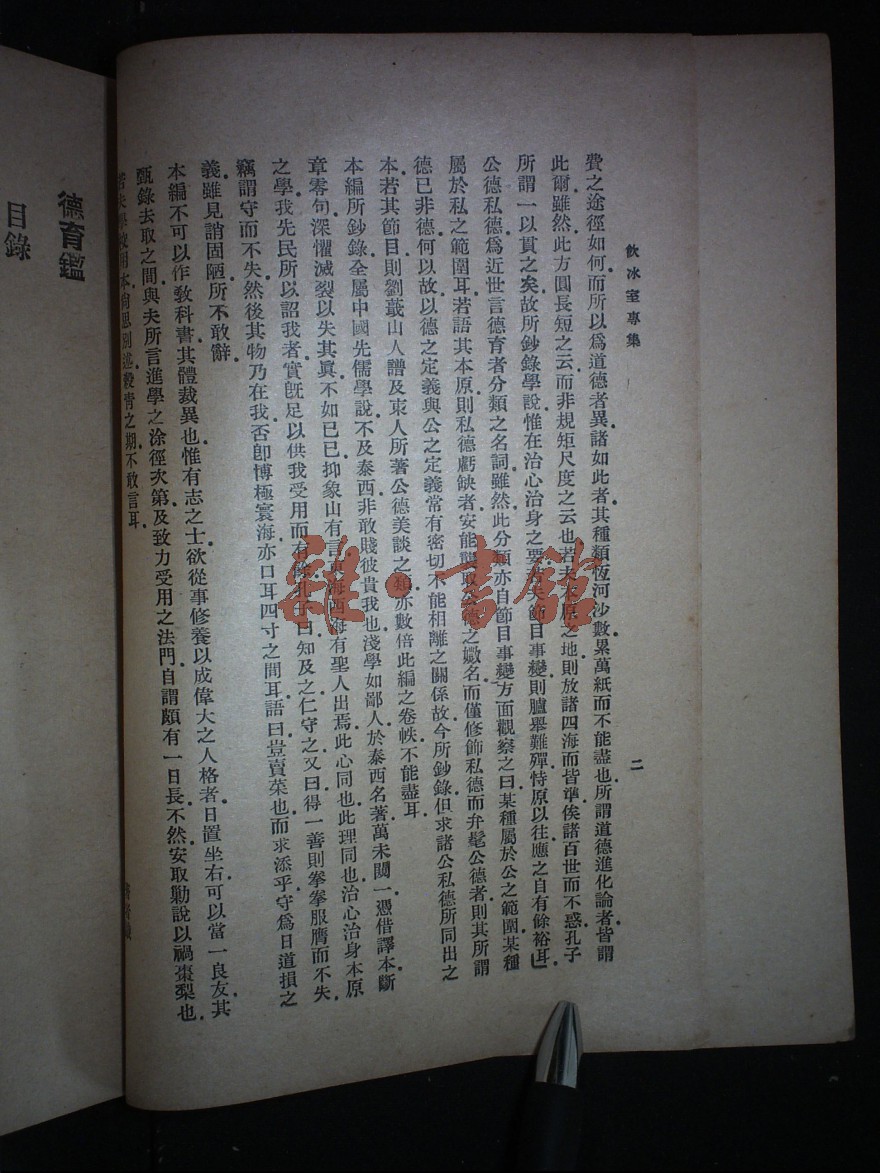 飮冰室專集
二
費之途徑如何而所以爲道德者異諸如此者其種類恆河沙數累萬紙而不能盡也所謂道德進化論者皆謂
此爾雖然此方圓長短之云而非規矩尺度之云也若夫本原之地則放諸四海而皆準俟諸百世而不惑孔子
所謂一以貫之矣故所鈔錄學說惟在治心治身之要若夫節目事變則臚舉難殫恃原以往應之自有餘裕耳」
公德私德爲近世言德育者分類之名詞雖然此分類亦自節目事變方面觀察之曰某種屬於公之範圍某種
屬於私之範圍耳若語其本原則私德虧缺者安能襲取公德之媺名而僅修飾私德而弁髦公德者則其所謂
德已非德何以故以德之定義與公之定義常有密切不能相離之關係故今所鈔錄但求諸公私德所同出之
本若其節目則劉蕺山人譜及東人所著公德美談之類亦數倍此編之卷帙不能盡耳
本編所鈔錄全屬中國先儒學說不及泰西非敢賤彼貴我也淺學如鄙人於泰西名著萬未闚一憑借譯本斷
章零句深懼滅裂以失其眞不如已已抑象山有言東海西海有聖人出焉此心同也此理同也治心治身本原
之學我先民所以詔我者實旣足以供我受用而有餘孔子曰知及之仁守之又曰得一善則拳拳服膺而不失
竊謂守而不失然後其物乃在我否卽博極寰海亦口耳四寸之間耳語曰豈賣菜也而求添乎守爲日道損之
義雖見誚固陋所不敢辭
本編不可以作敎科書其體裁異也惟有志之士欲從事修養以成偉大之人格者日置坐右可以當一良友其
甄錄去取之間與夫所言進學之涂徑次第及致力受用之法門自謂頗有一日長不然安取勦說以禍棗梨也
若夫學校用本尙思別述殺靑之期不敢言耳
德育鑑
目錄
雜·書館